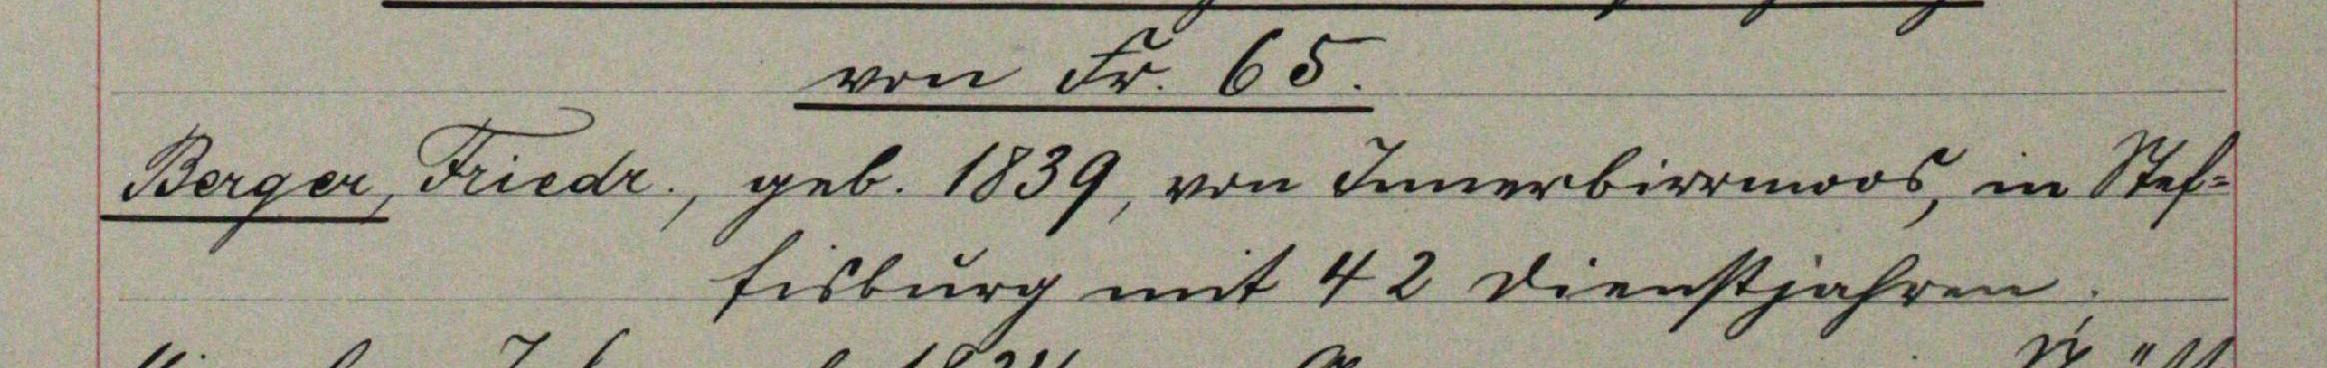 von Fr. 65.
Berger, Friedr., geb. 1839, von Innerbirrmoos, in Stef=
fisburg mit 42 Dienstjahren.